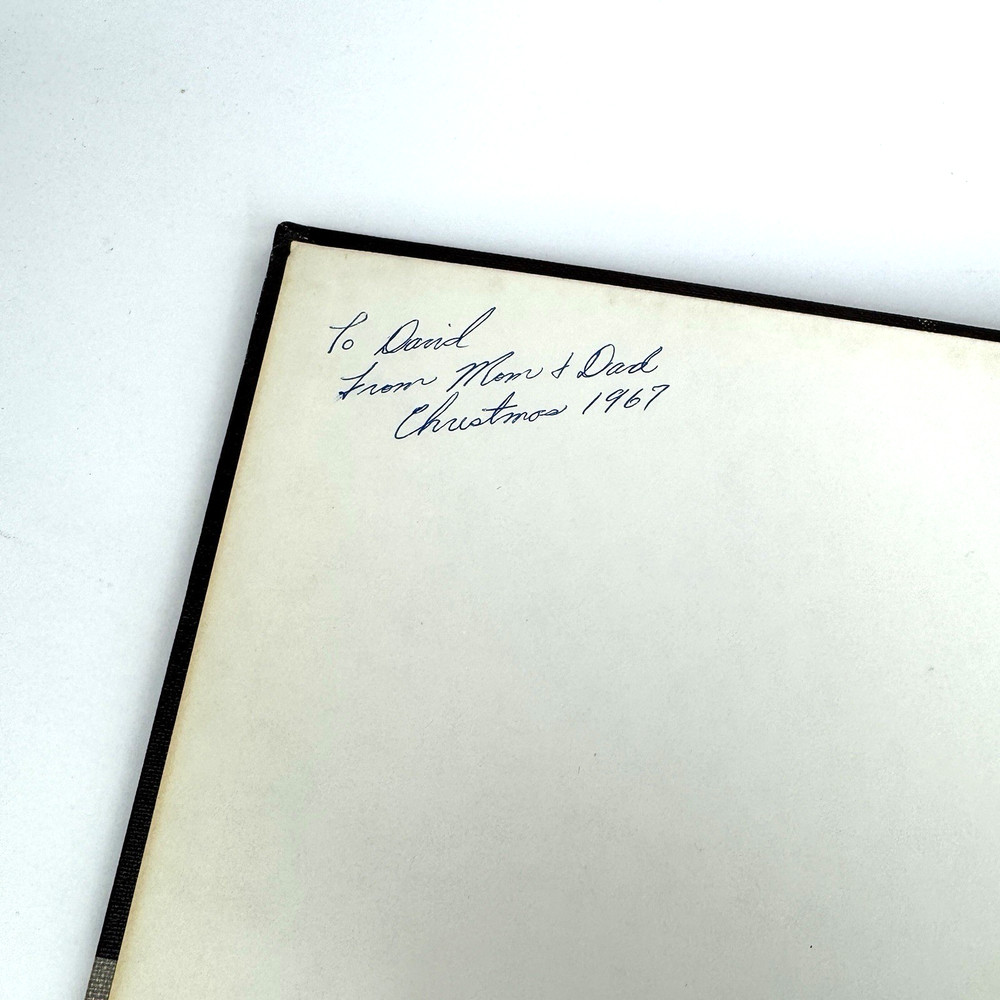 To David
From Mom & Dad
Christmas 1967